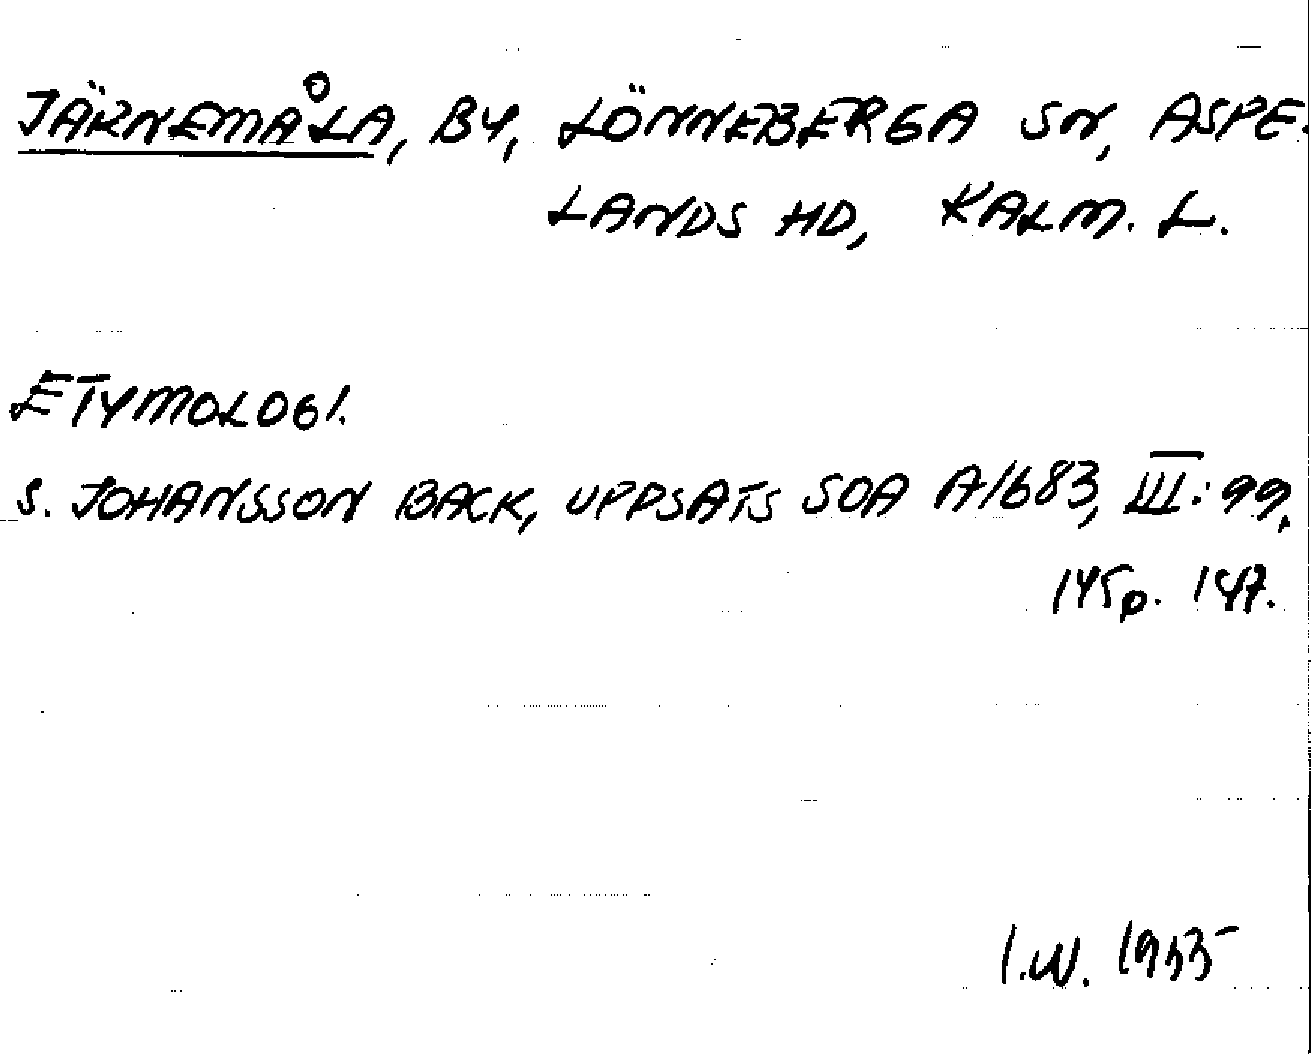 JÄRNEMÅLA, BY, LÖNNEBERGA SN, ASPE-
LANDS HD, KALM. L.
ETYMOLOGI.
S. JOHANSSON BACK, UPPSATS SOA A1683, III: 99,
145 o. 147.
I.W. 1955